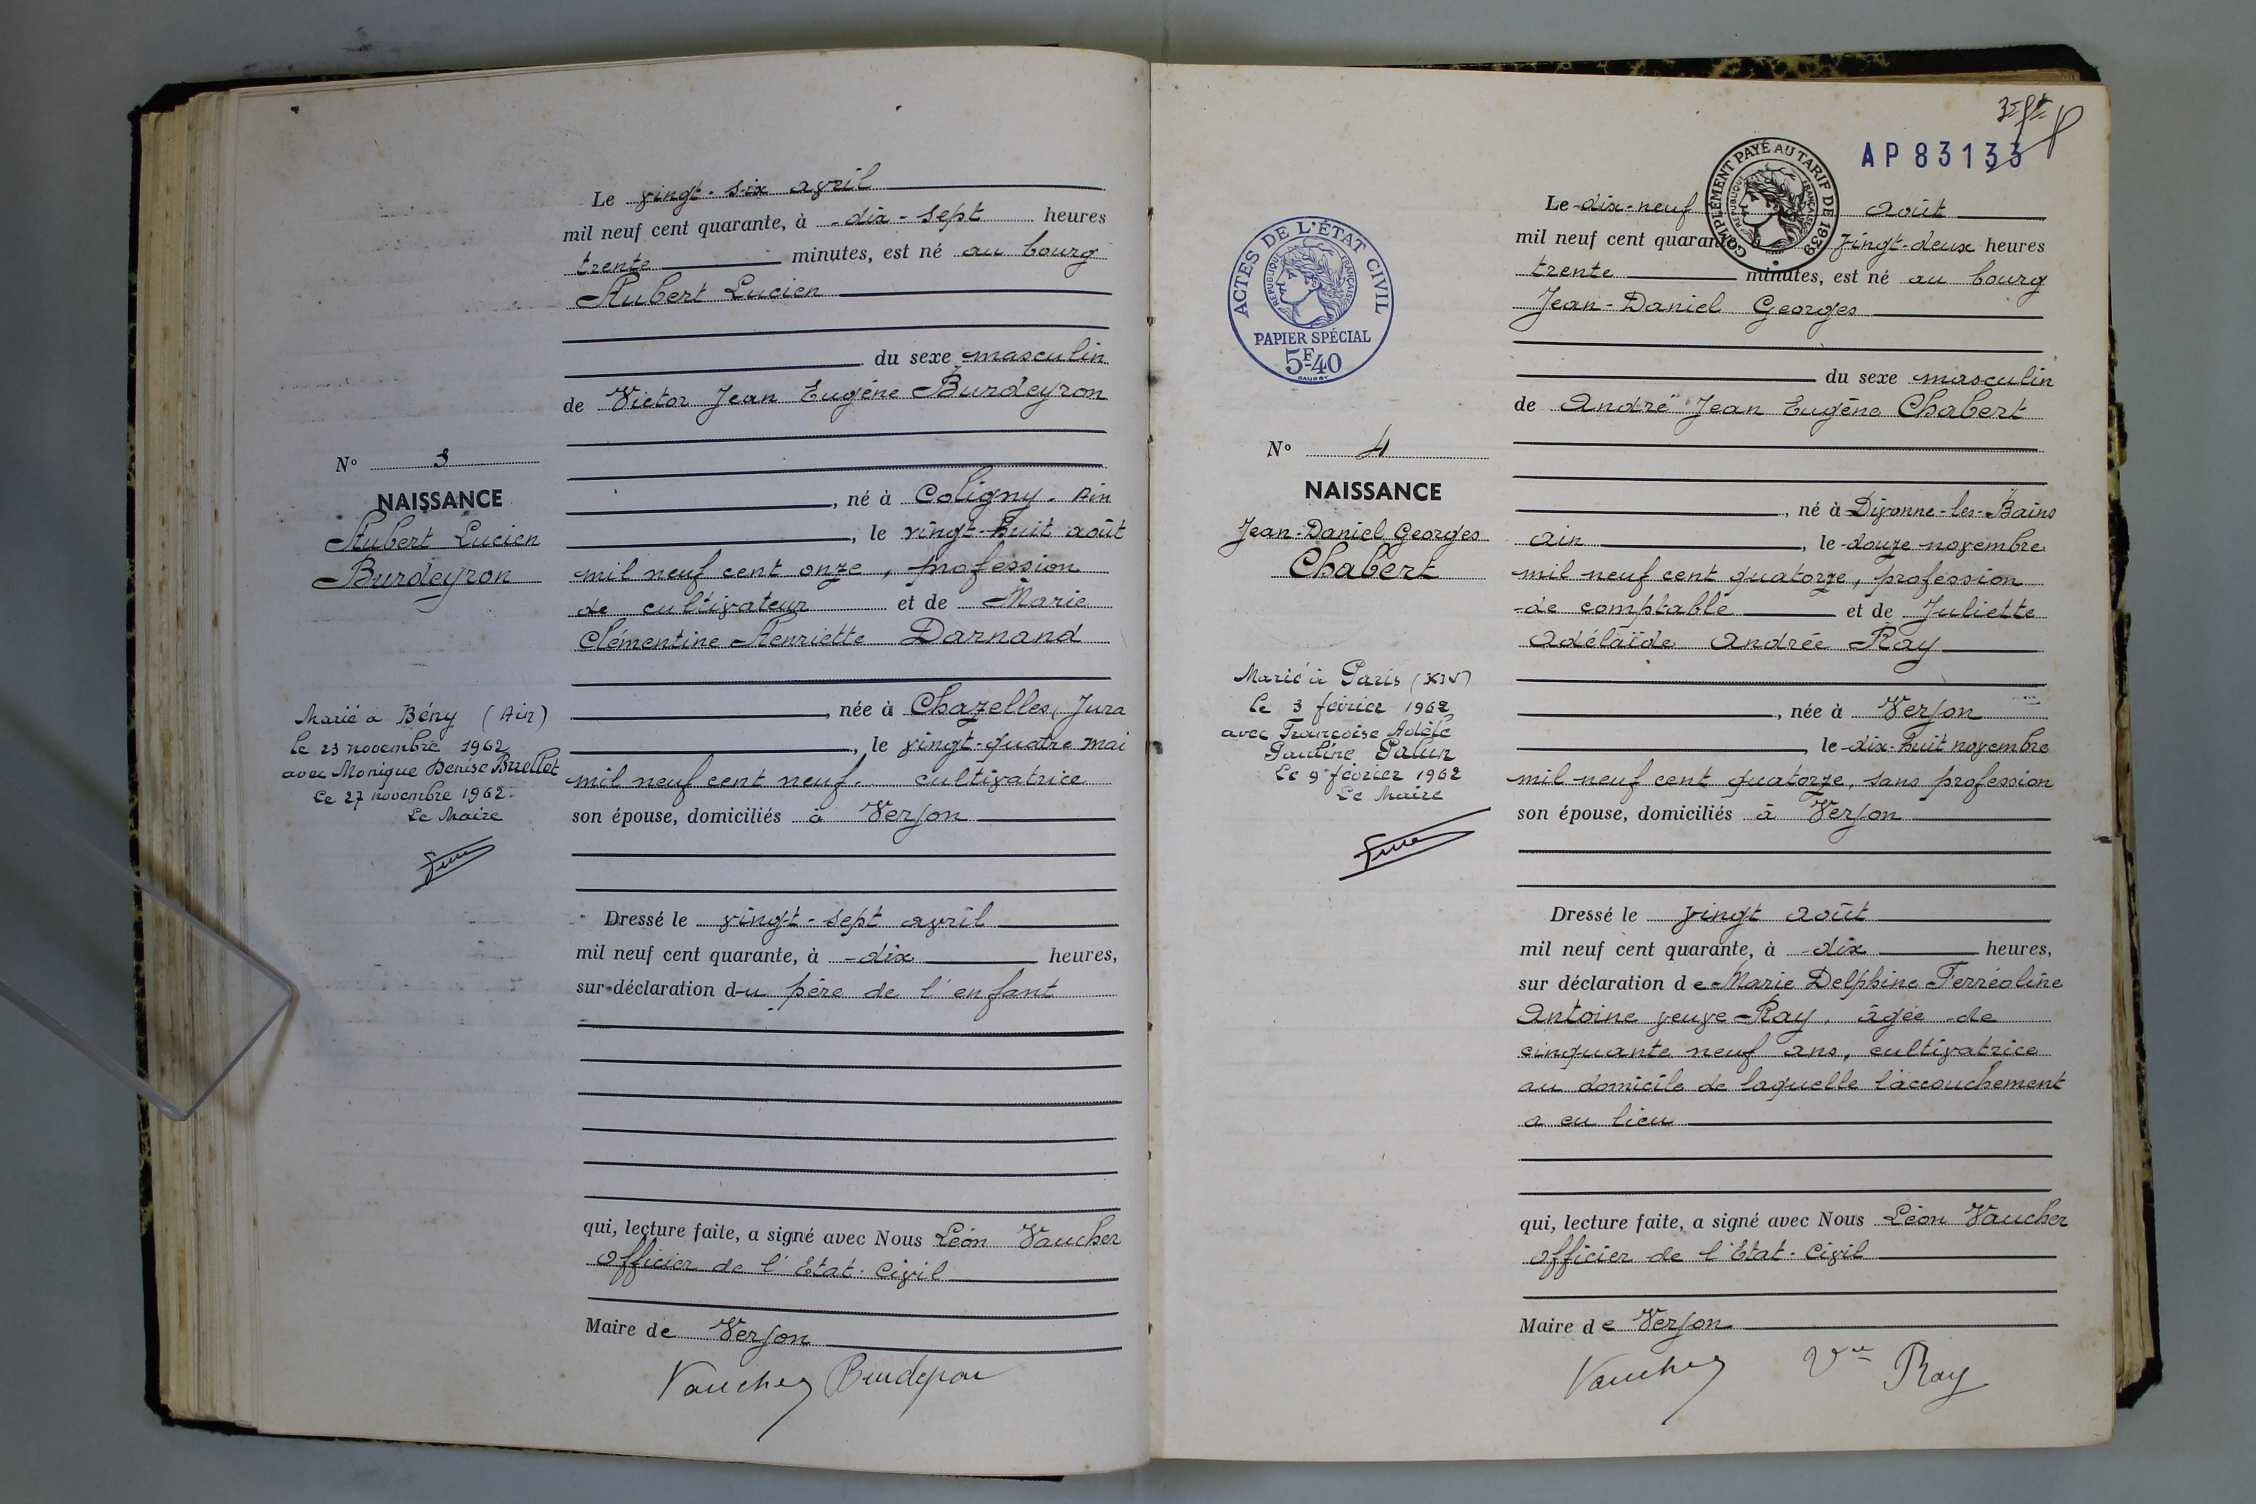 Le vingt-six avril
mil neuf cent quarante, à dix-sept heures
trente minutes, est né au bourg
Hubert Lucien
du sexe masculin
de Victor Jean Eugène Burdeyron
N° 3
NAISSANCE
Hubert Lucien
Burdeyron
, né à Coligny. Ain
, le vingt-huit août
mil neuf cent onze, profession
de cultivateur et de Marie
Clémentine Henriette Darnand
, née à Chazelles, Jura
, le vingt-quatre mai
mil neuf cent neuf. cultivatrice
son épouse, domiciliés à Verjon
Marié à Bény (Ain)
le 23 novembre 1962
avec Monique Denise Buellet
Le 27 novembre 1962.
Le Maire
Dressé le vingt-sept avril
mil neuf cent quarante, à dix heures,
sur déclaration du père de l'enfant
qui, lecture faite, a signé avec Nous Léon Vaucher
officier de l'État-Civil
Maire de Verjon
Vaucher Burdeyron
AP 83133
COMPLÉMENT PAYÉ AU TARIF DE 1939
RÉPUBLIQUE FRANÇAISE
ACTES DE L'ÉTAT CIVIL
RÉPUBLIQUE FRANÇAISE
PAPIER SPÉCIAL
5F.40
Le dix-neuf août
mil neuf cent quarante, vingt-deux heures
trente minutes, est né au bourg
Jean-Daniel Georges
du sexe masculin
de André Jean Eugène Chabert
N° 4
NAISSANCE
Jean-Daniel Georges
Chabert
, né à Divonne-les-Bains
Ain, le douze novembre
mil neuf cent quatorze, profession
de comptable et de Juliette
Adélaïde Andrée Ray
, née à Verjon
, le dix-huit novembre
mil neuf cent quatorze, sans profession
son épouse, domiciliés à Verjon
Marié à Paris (XIV)
le 3 février 1962
avec Françoise Adèle
Pauline Palun
Le 9 février 1962
Le Maire
Dressé le vingt août
mil neuf cent quarante, à dix heures,
sur déclaration de Marie Delphine Ferréoline
Antoine veuve Ray, âgée de
cinquante neuf ans, cultivatrice
au domicile de laquelle l'accouchement
a eu lieu
qui, lecture faite, a signé avec Nous Léon Vaucher
officier de l'Etat-Civil
Maire de Verjon
Vaucher Vve Ray